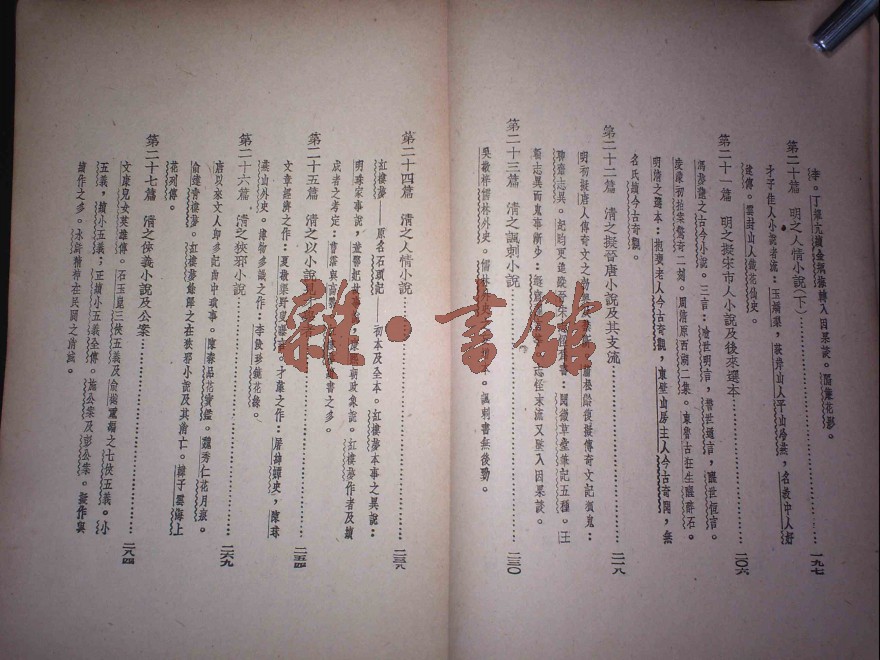 李。丁耀亢續金瓶梅轉入因果談。隔簾花影。
第二十篇 明之人情小說(下)…………一九七
才子佳人小說者流：玉嬌梨，荻岸山人平山冷燕，名教中人好
逑傳。雲封山人鐵花仙史。
第二十一篇 明之擬宋市人小說及後來選本…………二〇六
馮夢龍之古今小說。三言：喻世明言，警世通言，醒世恆言。
凌濛初拍案驚奇二刻。周清原西湖二集。東魯古狂生醉醒石。
明清之選本：抱甕老人今古奇觀，東壁山房主人今古奇聞，無
名氏續今古奇觀。
第二十二篇 清之擬晉唐小說及其支流…………二一八
明初擬唐人傳奇文之勃興及禁斷。蒲松齡復擬傳奇文記狐鬼：
聊齋志異。紀昀更追蹤晉宋志怪為書：閱微草堂筆記五種。王
韜志異而鬼事漸少：遯窟讕言等。志怪末流又墜入因果談。
第二十三篇 清之諷刺小說…………二三〇
吳敬梓儒林外史。儒林外史 諷刺書無後勁。
第二十四篇 清之人情小說…………二三八
紅樓夢——原名石頭記——初本及全本。紅樓夢本事之異說：
明珠家事說，董鄂妃故事說，康熙朝政象說。紅樓夢作者及續
成者之考定：曹霑與高鶚。紅樓夢續書之多。
第二十五篇 清之以小說見才學者…………二五四
文章經濟之作：夏敬渠野叟曝言。才藻之作：屠紳蟫史，陳球
燕山外史。博物多識之作：李汝珍鏡花緣。
第二十六篇 清之狹邪小說…………二六九
唐以來文人即多記曲中瑣事。陳森品花寶鑑。魏秀仁花月痕。
俞達青樓夢。紅樓夢餘裔之在狹邪小說及其消亡。韓子雲海上
花列傳。
第二十七篇 清之俠義小說及公案…………二八四
文康兒女英雄傳。石玉崑三俠五義及俞樾重編之七俠五義。小
五義，續小五義；正續小五義全傳。施公案及彭公案。擬作與
續作之多。水滸精神在民間之消滅。
雜·書館